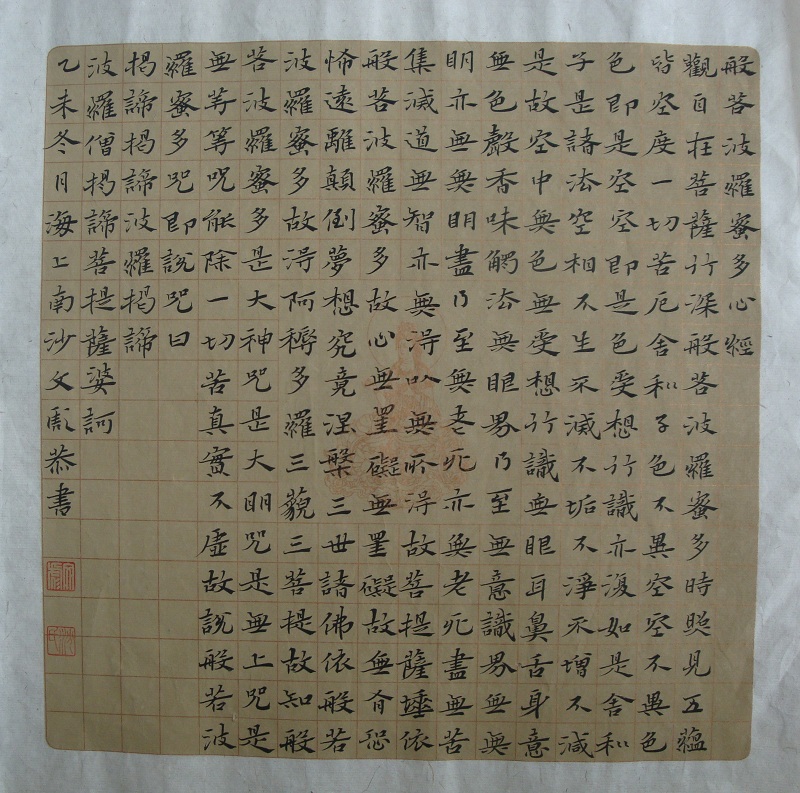 般若波羅蜜多心經
觀自在菩薩行深般若波羅蜜多時照見五蘊
皆空度一切苦厄舍利子色不異空空不異色
色即是空空即是色受想行識亦復如是舍利
子是諸法空相不生不滅不垢不淨不增不減
是故空中無色無受想行識無眼耳鼻舌身意
無色聲香味觸法無眼界乃至無意識界無無
明亦無無明盡乃至無老死亦無老死盡無苦
集滅道無智亦無得以無所得故菩提薩埵依
般若波羅蜜多故心無罣礙無罣礙故無有恐
怖遠離顛倒夢想究竟涅槃三世諸佛依般若
波羅蜜多故得阿耨多羅三藐三菩提故知般
若波羅蜜多是大神咒是大明咒是無上咒是
無等等咒能除一切苦真實不虛故說般若波
羅蜜多咒即說咒曰
揭諦揭諦波羅揭諦
波羅僧揭諦菩提薩婆訶
乙未冬月海上南沙文恭書